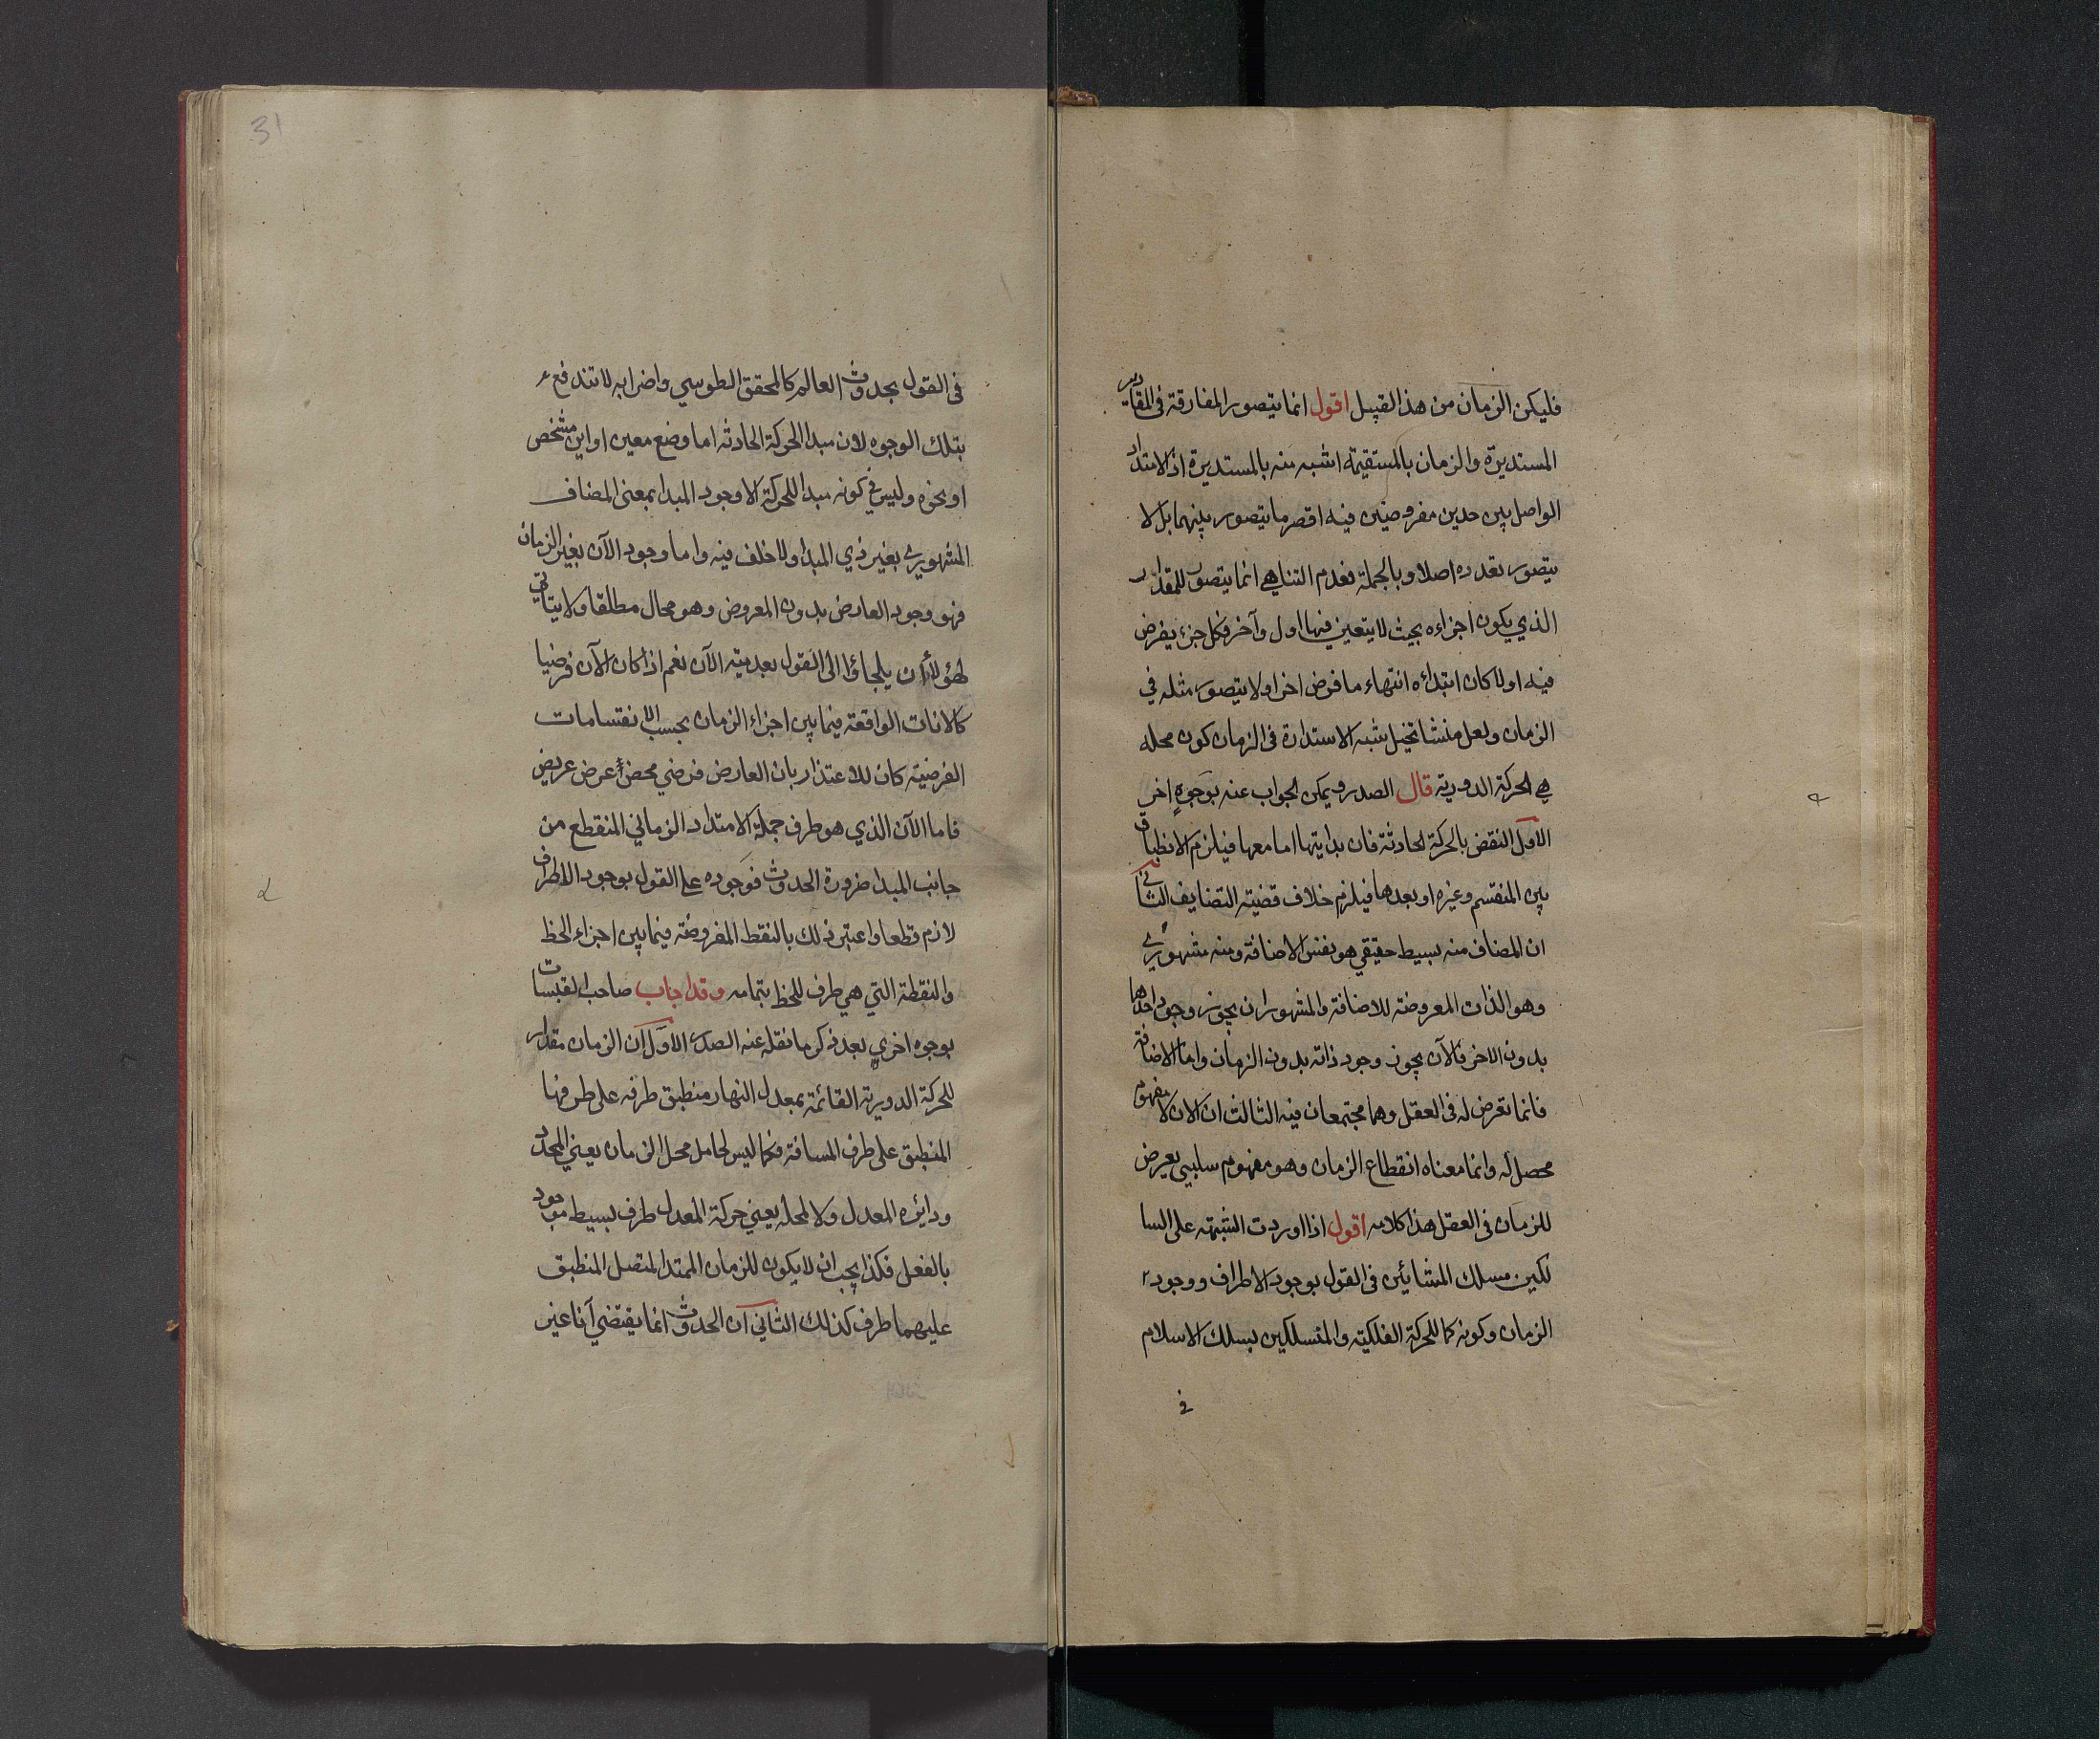 فليكن الزمان من هذا القبيل اقول انما يتصور المفارقة في المقادير
المستديرة والزمان بالمستقيمة اشبه منه بالمستديرة اذ الامتداد
الواصل بين حدين مفروضين فيه اقصر ما يتصور بينهما بل لا
يتصور تعدده اصلا وبالجملة فعدم التناهي انما يتصور للمقدار
الذي يكون اجزاءه بحيث لا يتعين فيها اول وآخر فكل جزء يفرض
فيه اولا كان ابتداءه انتهاء ما فرض اخرا ولا يتصور مثله في
الزمان ولعل منشا تخيل شبه الاستدارة في الزمان كون محله
هي الحركة الدورية قال الصدر ويمكن الجواب عنه بوجوه اخر
الاول النقض بالحركة الحادثة فان بدايتها اما معها فيلزم الانطباق
بين المنقسم وغيره او بعدها فيلزم خلاف قضية التضايف الثاني
ان المضاف منه بسيط حقيقي هو نفس الاضافة ومنه مشهوري
وهو الذات المعروضة للاضافة والمشهوران يجوز وجود احدهما
بدون الاخر فالآن يجوز وجود ذاته بدون الزمان واما الاضافة
فانما تعرض له في العقل وهما مجتمعان فيه الثالث ان الان لا مفهوم
محصل له وانما معناه انقطاع الزمان وهو مفهوم سلبي يعرض
للزمان في العقل هذا كلامه اقول اذا اوردت الشبهة على السا
لكين مسلك المشائين في القول بوجود الاطراف ووجود
الزمان وكونه كما للحركة الفلكية والمتسلكين بسلك الاسلام
في
31
في القول بحدوث العالم كالمحقق الطوسي واضرابه لا تندفع
بتلك الوجوه لان مبدا الحركة الحادثه اما وضع معين او اين مشخص
او نحوه وليس في كونه مبدا للحركة الا وجود المبدا بمعنى المضاف
المشهوري بغير ذي المبدا ولا خلف فيه واما وجود الآن بغير الزمان
فهو وجود العارض بدون المعروض وهو محال مطلقا ولا يتاتى
لهؤلاء ان يلجاؤا الى القول بعدمية الآن نعم اذا كان الآن فرضيا
كالانات الواقعة فيما بين اجزاء الزمان بحسب الانقسامات
الفرضية كان للاعتذار بان العارض فرضي محض عرض عريض
فاما الآن الذي هو طرف جملة الامتداد الزماني المنقطع من
جانب المبدا ضرورة الحدوث فوجوده على القول بوجود الاطراف
لازم قطعا واعتبر ذلك بالنقط المفروضة فيما بين اجزاء الخط
والنقطة التي هي طرف للخط بتمامه وقد اجاب صاحب القبسات
بوجوه اخري بعد ذكر ما نقله عنه الصدر الاول ان الزمان مقدار
للحركة الدورية القائمة بمعدل النهار منطبق طرفه على طرفها
المنطبق على طرف المسافة فكما ليس لحامل محل الزمان يعني المحدد
ودائره المعدل ولا لمحله يعني حركة المعدل طرف بسيط موجود
بالفعل فكذا يجب ان لا يكون للزمان الممتد المتصل المنطبق
عليهما طرف كذلك الثاني ان الحدوث انما يقتضي آنا غير